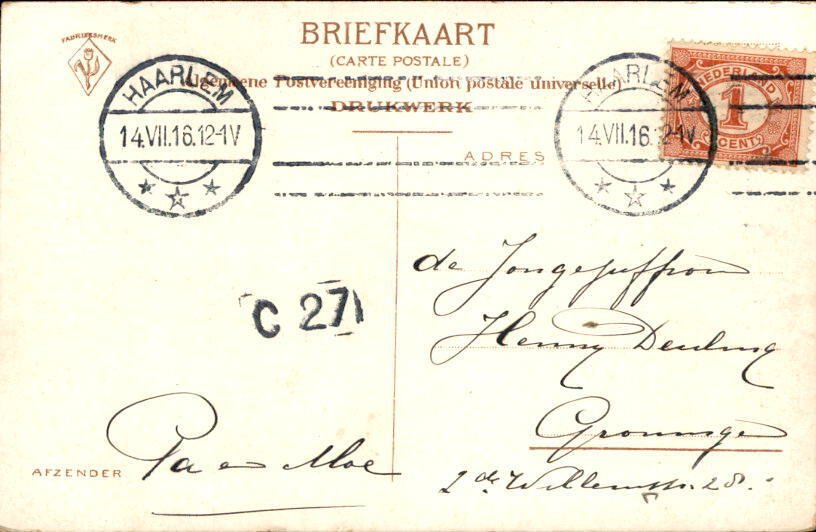 BRIEFKAART
(CARTE POSTALE)
FABRIEKSMERK
Algemeene Postvereeniging (Union postale universelle)
DRUKWERK
HAARLEM
14.VII.16.12-1V
HAARLEM
14.VII.16.12-1V
NEDERLAND
1
CENT
ADRES
de Jongejuffrouw
Henny
C 27
Groningen
AFZENDER
Pa en Moe
2de Willemstr. 28.